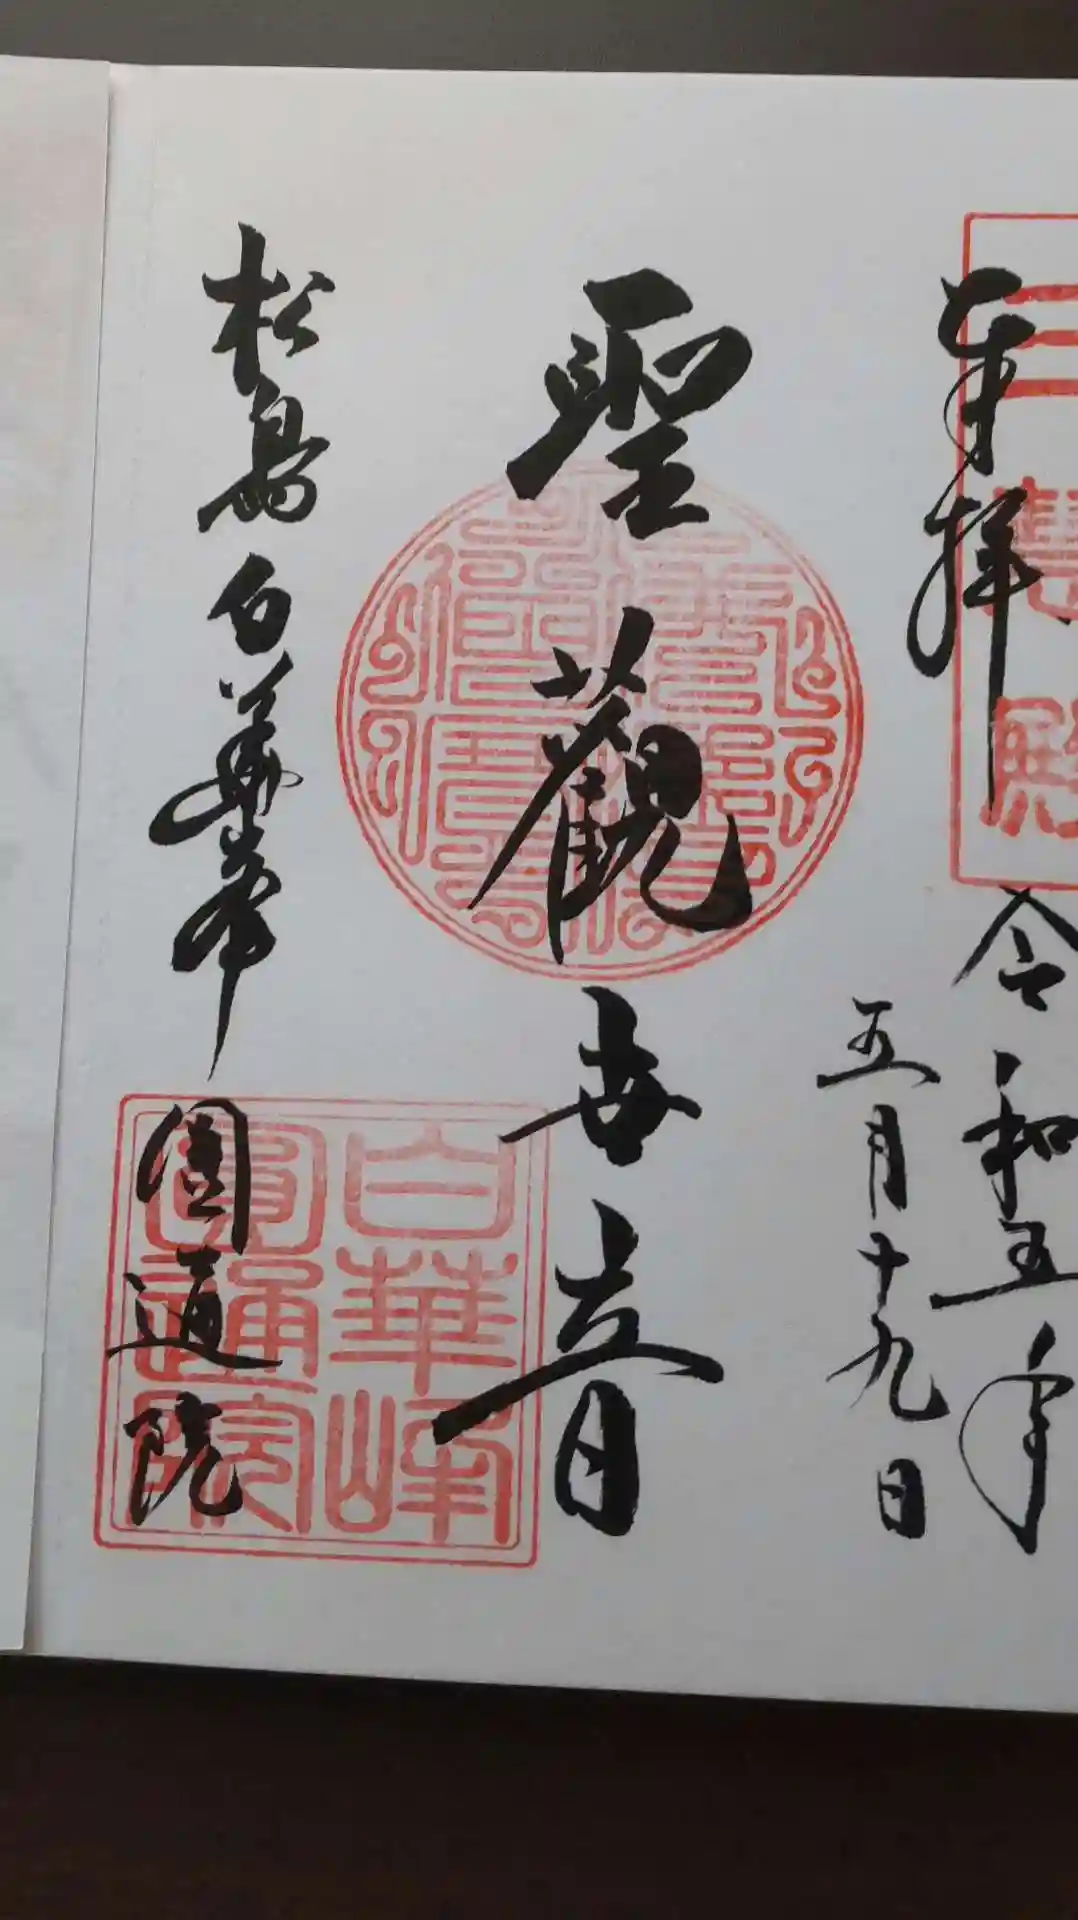 奉拝
令和五年
五月十九日
聖觀世音
松島白華峰
圓通院
三慧殿
白華峰
圓通院